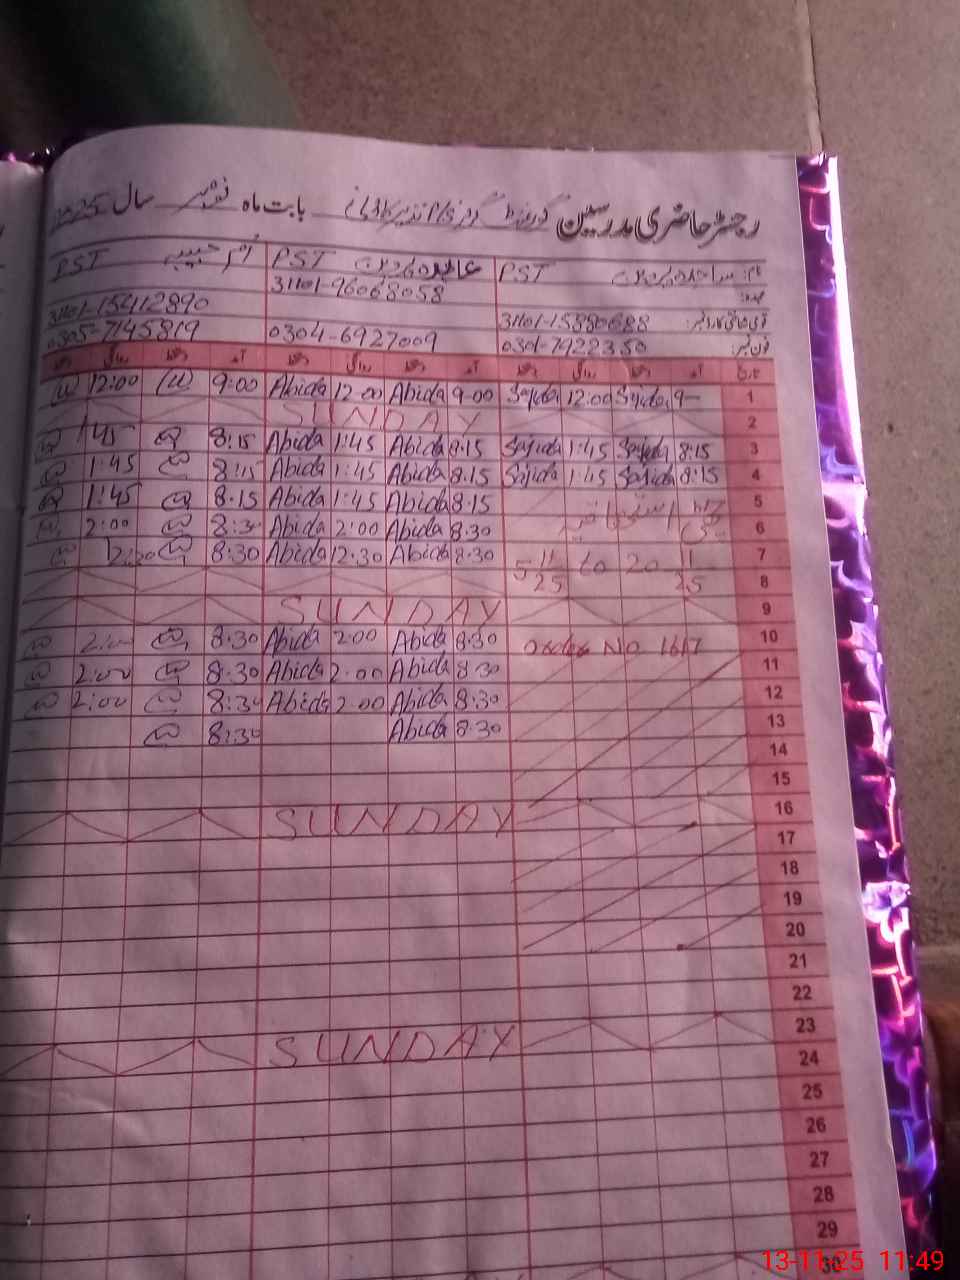 رجسٹر حاضری مدرسین گورنمنٹ گرلز بابت ماہ نومبر سال 2025
نام: PST عابدہ پروین PST ام حبیبہ PST
عہدہ:
قومی شناختی کارڈ نمبر: 31101-15880688 31101-96068058 31101-15412890
فون نمبر: 0301-7922350 0304-6927009 0305-7145819
تاریخ آمد دستخط روانگی دستخط آمد دستخط روانگی دستخط آمد دستخط روانگی دستخط
12:00 9:00 Abida 12:00 Abida 9-00 Sajida 12:00 Sajida 9- 1
SUNDAY 2
1:45 8:15 Abida 1:45 Abida 8:15 Sajida 1:45 Sajida 8:15 3
1:45 8:15 Abida 1:45 Abida 8.15 Sajida 1:45 Sajida 8:15 4
1:45 8.15 Abida 1:45 Abida 8.15 5
2:00 8:30 Abida 2:00 Abida 8.30 6
12:30 8:30 Abida 12:30 Abida 8:30 5 11/25 to 20 11/25 7
8
SUNDAY 9
2:00 8:30 Abida 2:00 Abida 8:30 Order No 1617 10
2:00 8:30 Abida 2:00 Abida 8:30 11
2:00 8:30 Abida 2:00 Abida 8:30 12
8:30 Abida 8.30 13
14
15
SUNDAY 16
17
18
19
20
21
22
SUNDAY 23
24
25
26
27
28
29
30
13-11-25 11:49